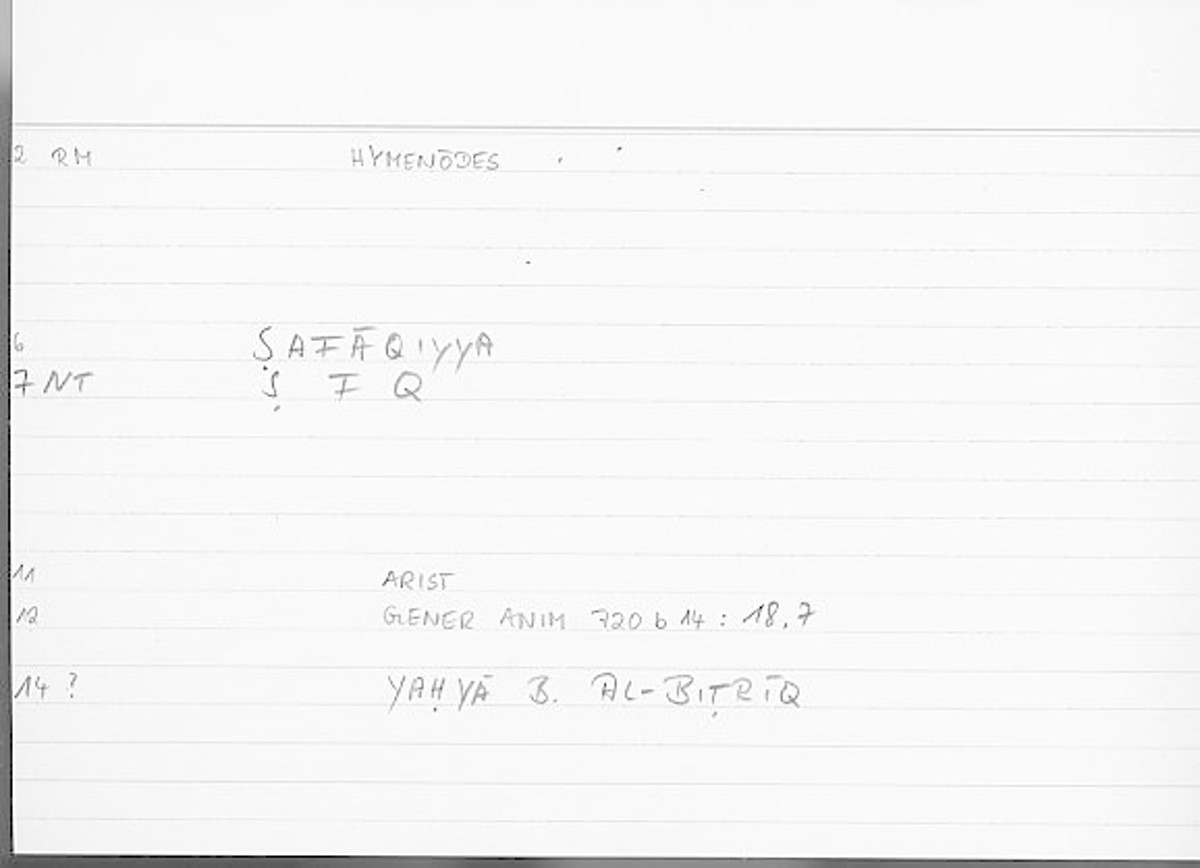 2 RM HYMENŌDES
6 ṢAFĀQIYYA
7 NT Ṣ F Q
11 ARIST
12 GENER ANIM 720 b 14 : 18,7
14 ? YAḤYĀ B. AL-BIṬRĪQ